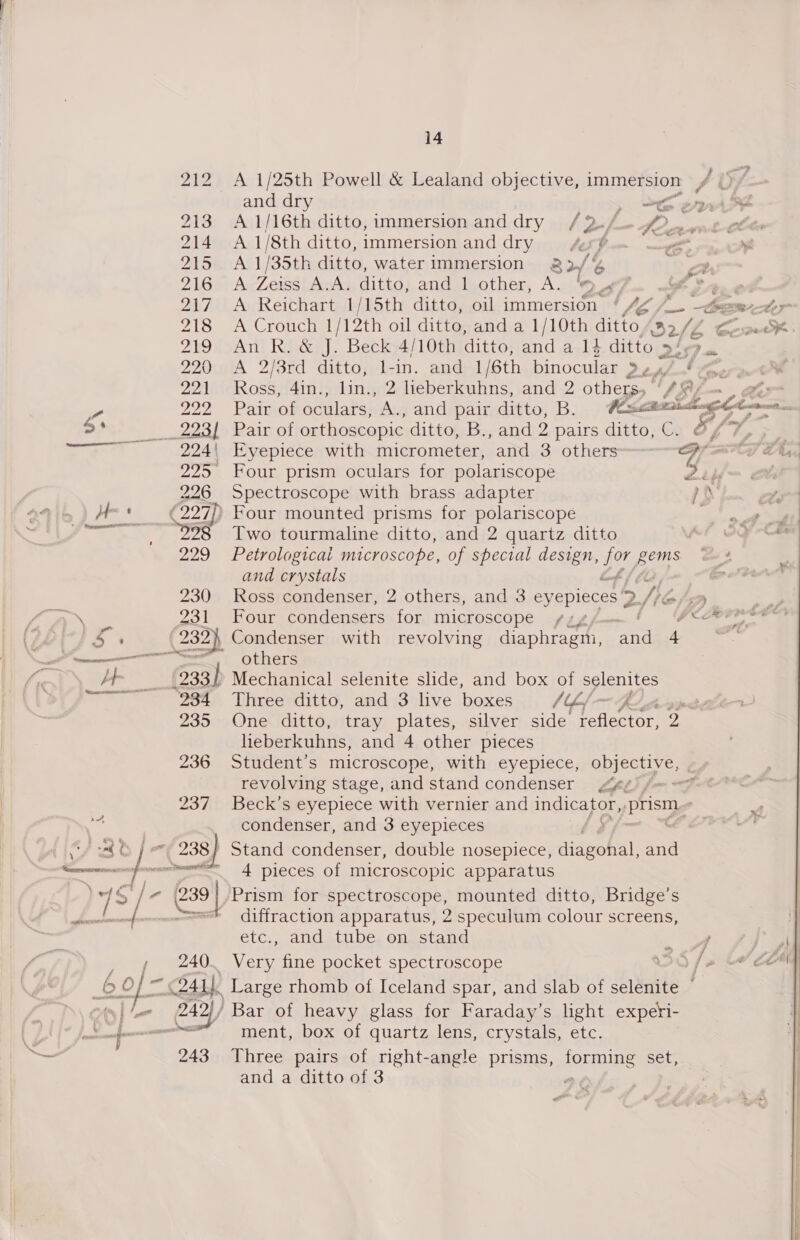 14
212 A 1/25th Powell & Lealand objective, immersion
and dry
213 A 1/16th ditto, immersion and dry 12/-
214 A 1/8th ditto, immersion and dry
215 A 1/35th ditto, water immersion 22/6
216 A Zeiss A.A. ditto, and 1 other, A.
217 A Reichart 1/15th ditto, oil immersion
218 A Crouch 1/12th oil ditto, and a 1/10th ditto 32/6
219 An R. & J. Beck 4/10th ditto, and a 1½ ditto
220 A 2/3rd ditto, 1-in. and 1/6th binocular
221 Ross, 4in., 1in., 2 lieberkuhns, and 2 others,
222 Pair of oculars, A., and pair ditto, B.
223 Pair of orthoscopic ditto, B., and 2 pairs ditto, C.
224 Eyepiece with micrometer, and 3 others
225 Four prism oculars for polariscope
226 Spectroscope with brass adapter
227 Four mounted prisms for polariscope
228 Two tourmaline ditto, and 2 quartz ditto
229 Petrological microscope, of special design, for gems
and crystals
230 Ross condenser, 2 others, and 3 eyepieces
231 Four condensers for microscope
232 Condenser with revolving diaphragm, and 4
others
233 Mechanical selenite slide, and box of selenites
234 Three ditto, and 3 live boxes
235 One ditto, tray plates, silver side reflector, 2
lieberkuhns, and 4 other pieces
236 Student's microscope, with eyepiece, objective,
revolving stage, and stand condenser
237 Beck's eyepiece with vernier and indicator, prism
condenser, and 3 eyepieces
238 Stand condenser, double nosepiece, diagonal, and
4 pieces of microscopic apparatus
45/- 239 Prism for spectroscope, mounted ditto, Bridge's
diffraction apparatus, 2 speculum colour screens,
etc., and tube on stand
240 Very fine pocket spectroscope
60/- 241 Large rhomb of Iceland spar, and slab of selenite
242 Bar of heavy glass for Faraday's light experi-
ment, box of quartz lens, crystals, etc.
243 Three pairs of right-angle prisms, forming set,
and a ditto of 3